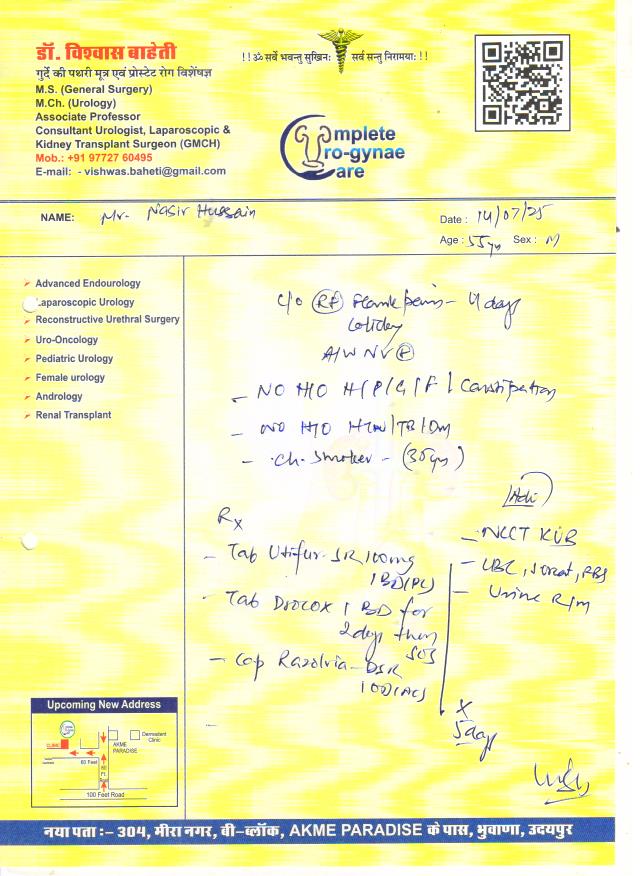 डॉ. विश्वास बाहेती
गुर्दे की पथरी मूत्र एवं प्रोस्टेट रोग विशेषज्ञ
M.S. (General Surgery)
M.Ch. (Urology)
Associate Professor
Consultant Urologist, Laparoscopic &
Kidney Transplant Surgeon (GMCH)
Mob.: +91 97727 60495
E-mail: - vishwas.baheti@gmail.com
!!ॐ सर्वे भवन्तु सुखिनः सर्व सन्तु निरामयाः!!
Complete
Uro-gynae
Care
NAME: Mr. Nasir Hussain
Date : 14/07/25
Age : 55yr Sex : M
Advanced Endourology
Laparoscopic Urology
Reconstructive Urethral Surgery
Uro-Oncology
Pediatric Urology
Female urology
Andrology
Renal Transplant
C/O Rt Flank pain - 4 days
A/W NV
- NO H/O H/P/G/F / Constipation
- NO H/O HTN/TB/DM
- Ch. Smoker - (35 yrs)
Adv
- NCCT KUB
- CBC, S creat, RBS
- Urine R/M
Rx
- Tab Utifur-SR 100mg
1 BD (PC)
- Tab Drocox 1 BD for
2 days then
SOS
- Cap Razolvia-DSR
1 OD (AC)
X
5 days
Upcoming New Address
CLINIC
AKME
PARADISE
Dermadent
Clinic
60 Feet
60
Ft.
Road
100 Feet Road
नया पता :- 304, मीरा नगर, बी-ब्लॉक, AKME PARADISE के पास, भुवाणा, उदयपुर